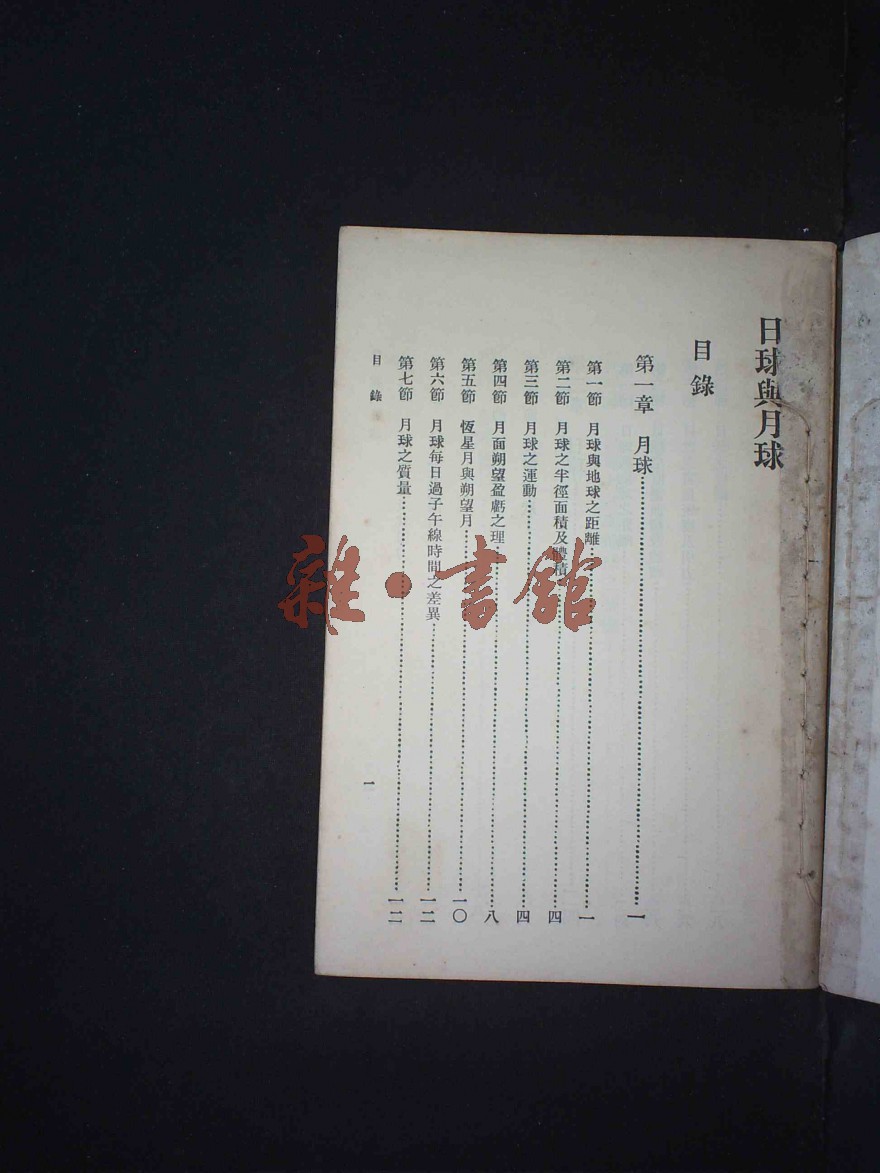 日球與月球
目錄
第一章 月球…………一
第一節 月球與地球之距離…………一
第二節 月球之半徑面積及體積…………四
第三節 月球之運動…………四
第四節 月面朔望盈虧之理…………八
第五節 恆星月與朔望月…………一〇
第六節 月球每日過子午線時間之差異…………一二
第七節 月球之質量…………一二
目錄
一
雜·書館